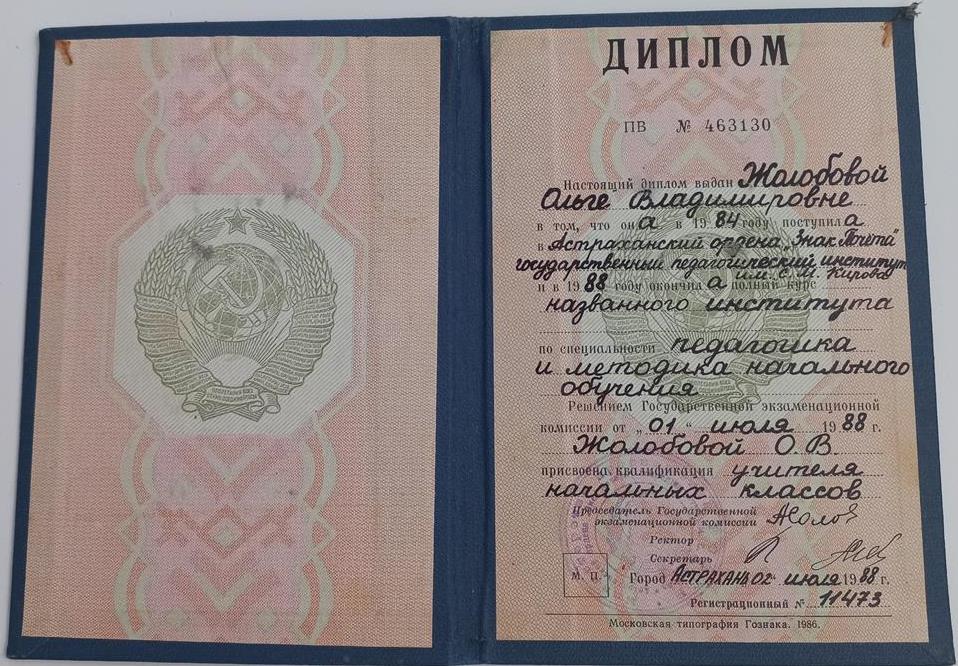 ДИПЛОМ
ПВ № 463130
Настоящий диплом выдан Жолобовой
Ольге Владимировне
в том, что он а в 19 84 году поступил а
в Астраханский ордена „Знак Почёта"
государственный педагогический институт
им. С. М. Кирова
и в 19 88 году окончил а полный курс
названного института
по специальности педагогика
и методика начального
обучения
Решением Государственной экзаменационной
комиссии от „ 01 " июля 19 88 г.
Жолобовой О. В.
присвоена квалификация учителя
начальных классов
Председатель Государственной
экзаменационной комиссии
Ректор
Секретарь
М. П. Город Астрахань 02 " июля 19 88 г.
Регистрационный № 11473
Московская типография Гознака. 1986.